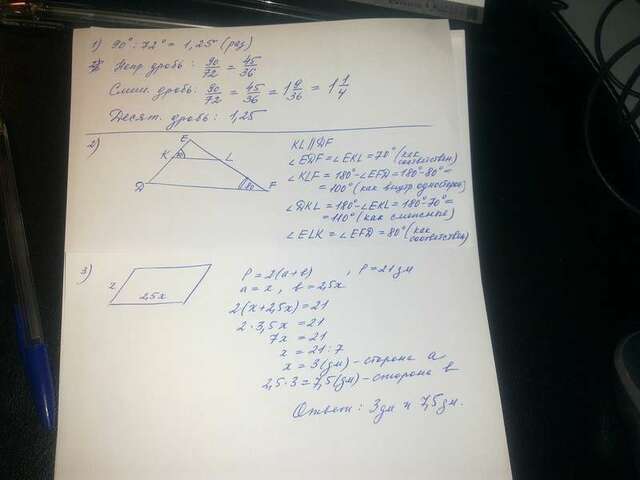 1) 90° : 72° = 1,25 (раз)
Непр. дробь: 90/72 = 45/36
Смеш. дробь: 90/72 = 45/36 = 1 9/36 = 1 1/4
Десят. дробь: 1,25
2)
E
K
L
D
80
F
KL || DF
∠EDF = ∠EKL = 70° (как
соответствен)
∠KLF = 180° - ∠EFD = 180° - 80° =
= 100° (как внутр одностор)
∠DKL = 180° - ∠EKL = 180° - 70° =
= 110° (как смежные)
∠ELK = ∠EFD = 80° (как
соответствен)
3)
x
2,5x
P = 2(a+b) , P = 21 дм
a = x , b = 2,5x
2(x+2,5x) = 21
2 · 3,5x = 21
7x = 21
x = 21 : 7
x = 3 (дм) - сторона a
2,5 · 3 = 7,5 (дм) - сторона b
Ответ: 3 дм и 7,5 дм.